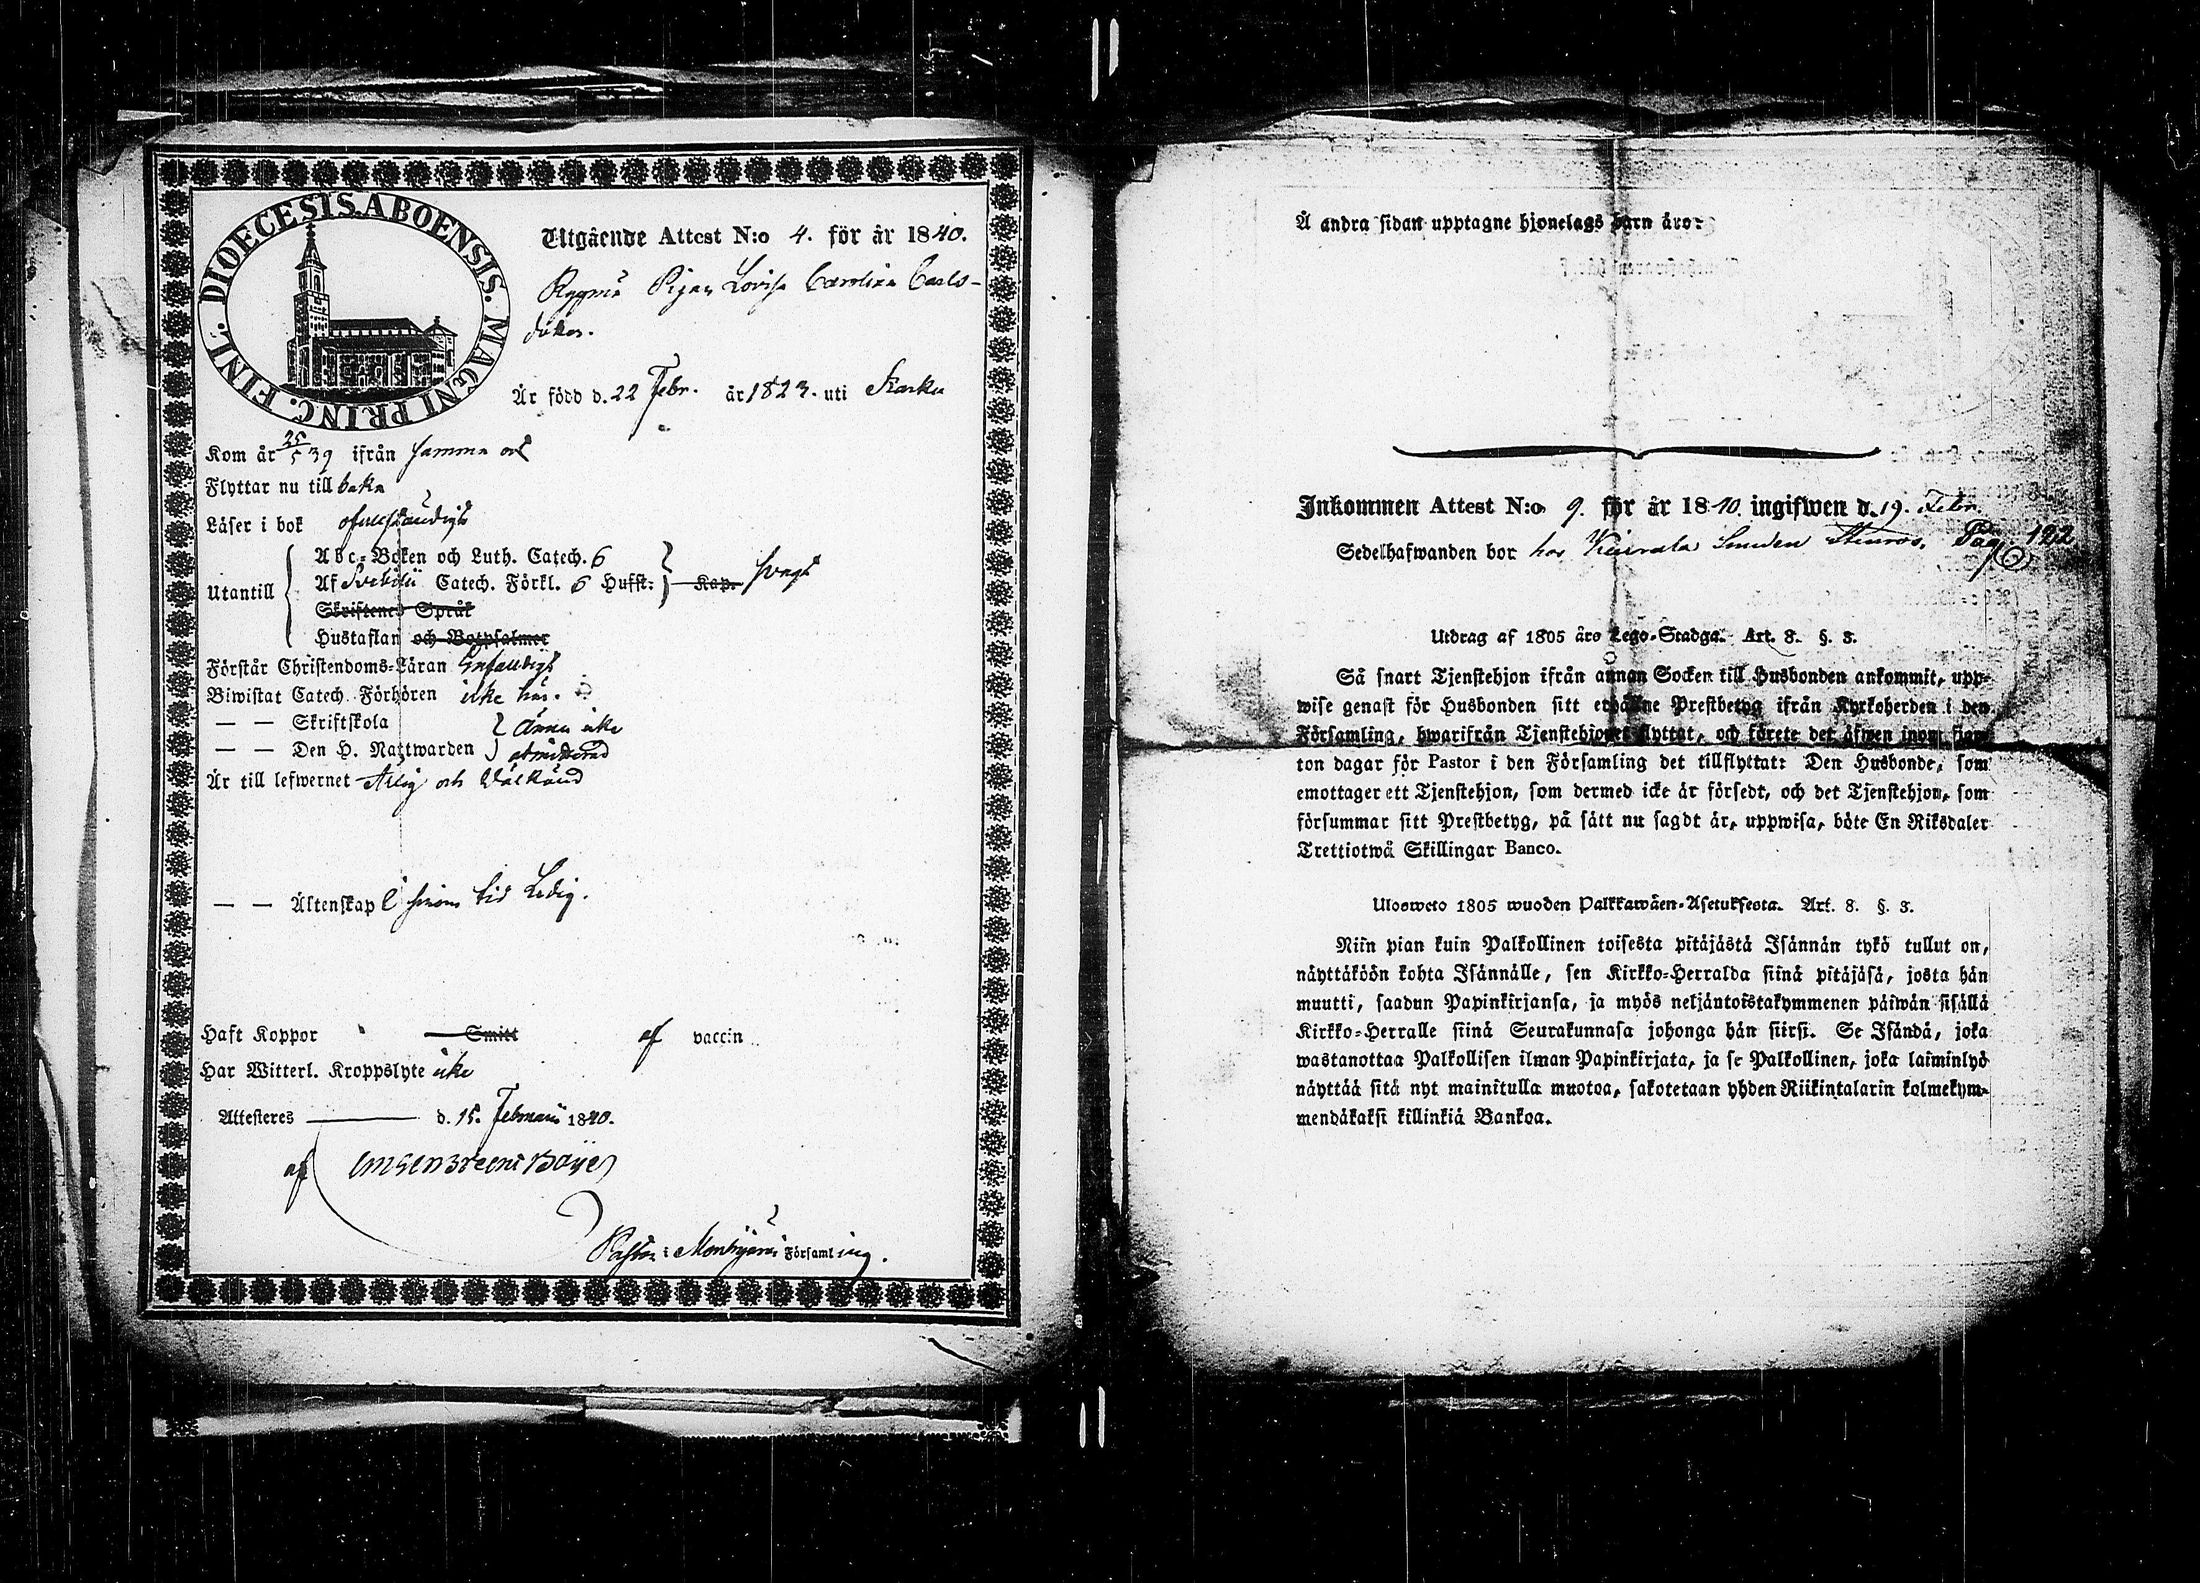 DIOECESIS.ABOENSIS. MAGNI PRINC. FINL.
Utgående Attest N:o 4. för år 1840.
Pigan Lovisa Carolina Carls-
dotter.
Är född d. 22 Febr. år 1823. uti Karku
Kom år 25/5 39 ifrån samma ort
Flyttar nu till baka
Läser i bok ofullständigt
Utantill
Abc-Boken och Luth. Catech. 6
Af Svebilii Catech. Förkl. 6 Hufst: Kap. svagt
Skriftenes Språk
Hustaflan och Botpsalmer
Förstår Christendoms-Läran Enfaldigt
Biwistat Catech. Förhören icke här.
— — Skriftskola Ännu icke
— — Den H. Nattwarden admitterad
Är till lefwernet Ärlig och Välkänd
— — Äktenskap Ledig.
Haft Koppor Smitt af vaccin
Har Witterl. Kroppslyte icke
Attesteres d. 15. Februarii 1840.
af
Pastor i Mouhijärvi Församling.
Å andra sidan upptagne hjonelags barn äro:
Inkommen Attest N:o 9. för år 1840. ingifwen d. 19. Febr.
Sedelhafwanden bor hos Pag. 122
Utdrag af 1805 års Lego-Stadga. Art. 8. §. 3.
Så snart Tjenstehjon ifrån annan Socken till Husbonden ankommit, upp-
wise genast för Husbonden sitt erhållne Prestbetyg ifrån Kyrkoherden i den
Församling, hwarifrån Tjenstehjonet flyttat, och förete det äfwen inom fjor-
ton dagar för Pastor i den Församling det tillflyttat: Den Husbonde, som
emottager ett Tjenstehjon, som dermed icke är försedt, och det Tjenstehjon, som
försummar sitt Prestbetyg, på sätt nu sagdt är, uppwisa, böte En Riksdaler
Trettiotwå Skillingar Banco.
Ulosweto 1805 wuoden Palkkawäen-Asetuksesta. Art. 8. §. 3.
Niin pian kuin Palkollinen toisesta pitäjästä Isännän tykö tullut on,
näyttäköön kohta Isännälle, sen Kirkko-Herralda siinä pitäjäsä, josta hän
muutti, saadun Papinkirjansa, ja myös neljäntoistakymmenen päiwän sisällä
Kirkko-Herralle siinä Seurakunnasa johonga hän siirsi. Se Isändä, joka
wastanottaa Palkollisen ilman Papinkirjata, ja se Palkollinen, joka laiminlyö
näyttää sitä nyt mainitulla muotoa, sakotetaan yhden Riikintalarin kolmekym-
mendäkaksi killinkiä Bankoa.